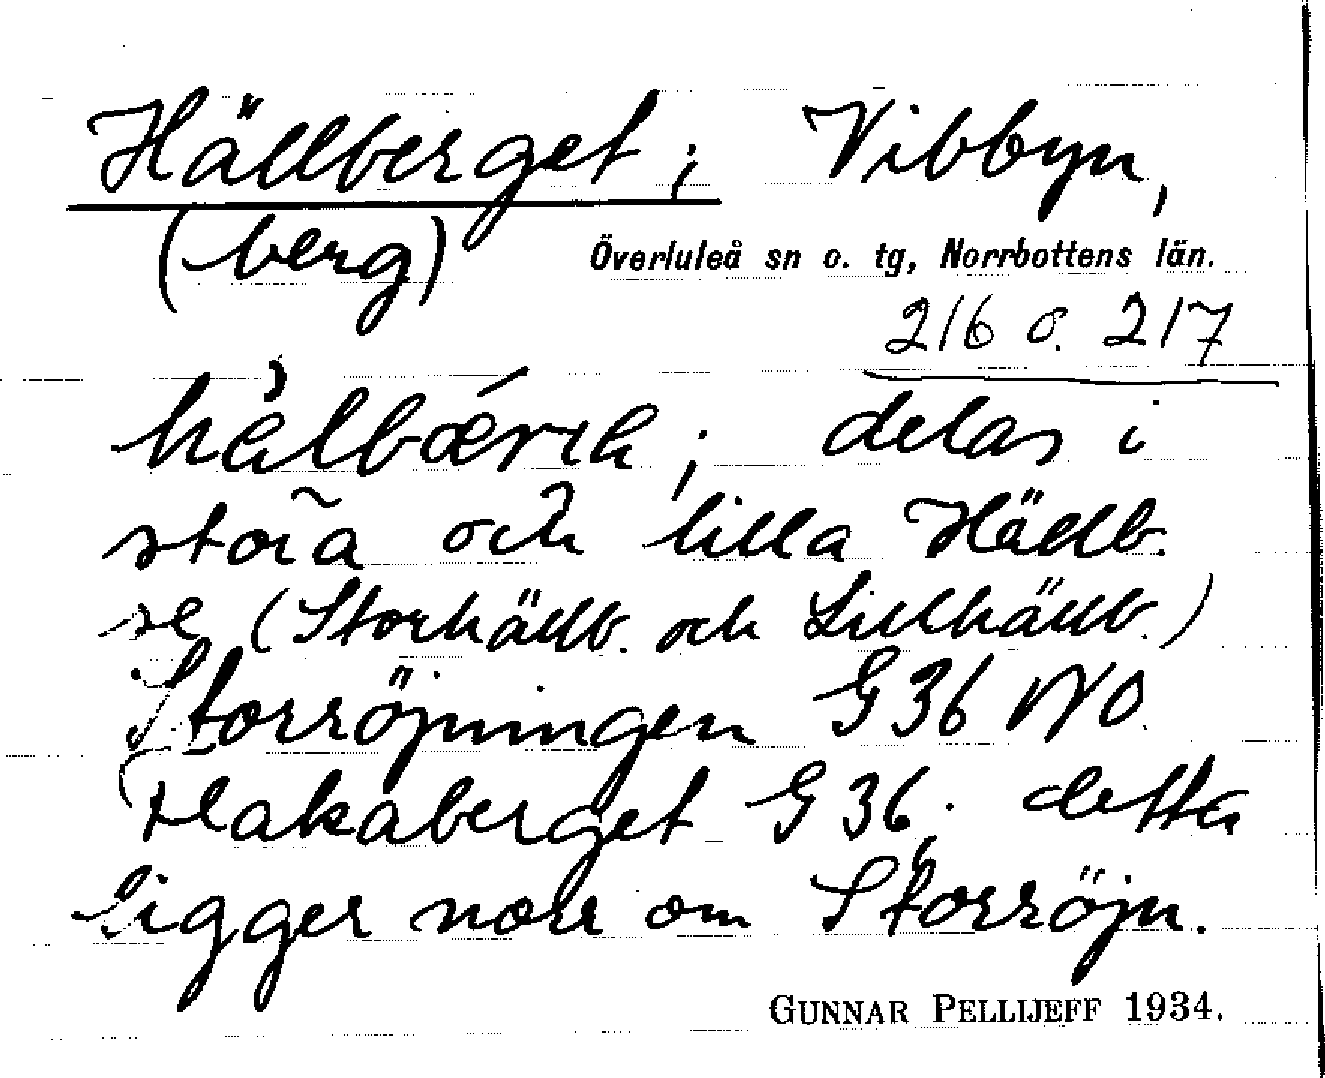 Hällberget; Vibbyn,
(berg) Överluleå sn o. tg, Norrbottens län.
216 o. 217
hèlbǽrɜh; delas i
stora och lilla Hällb.
se (Storhällb. och Lillhällb.)
Storröjningen G36 NO.
Hakaberget G36; detta
ligger norr om Storröjn.
GUNNAR PELLIJEFF 1934.